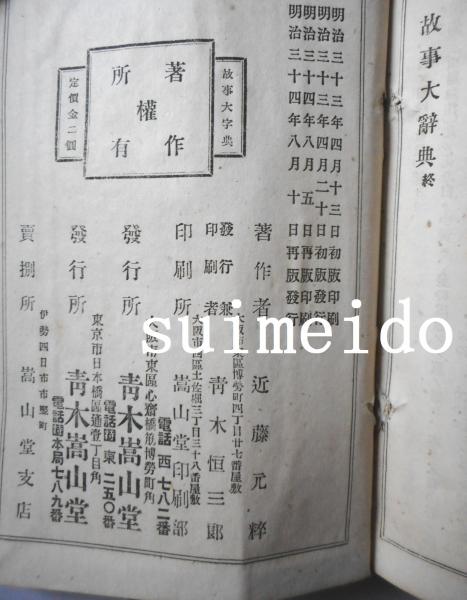 故事大辭典終
明治三十三年四月十三日初版印刷
明治三十三年四月二十日初版發行
明治三十四年八月五日再版印刷
明治三十四年八月十日再版發行
故事大字典
著作
權
所有
定價金二圓
著作者 近藤元粹
大阪市東區博勞町四丁目廿七番屋敷
發行兼
印刷者 青木恒三郎
大阪市西區土佐堀三丁目三十八番屋敷
印刷所 嵩山堂印刷部
電話西七八二番
南東區心齋橋筋博勞町角
發行所 青木嵩山堂
電話東二五〇番
東京市日本橋區通壹丁目角
發行所 青木嵩山堂
電話本局七八九番
伊勢四日市市竪町
賣捌所 嵩山堂支店
suimeido